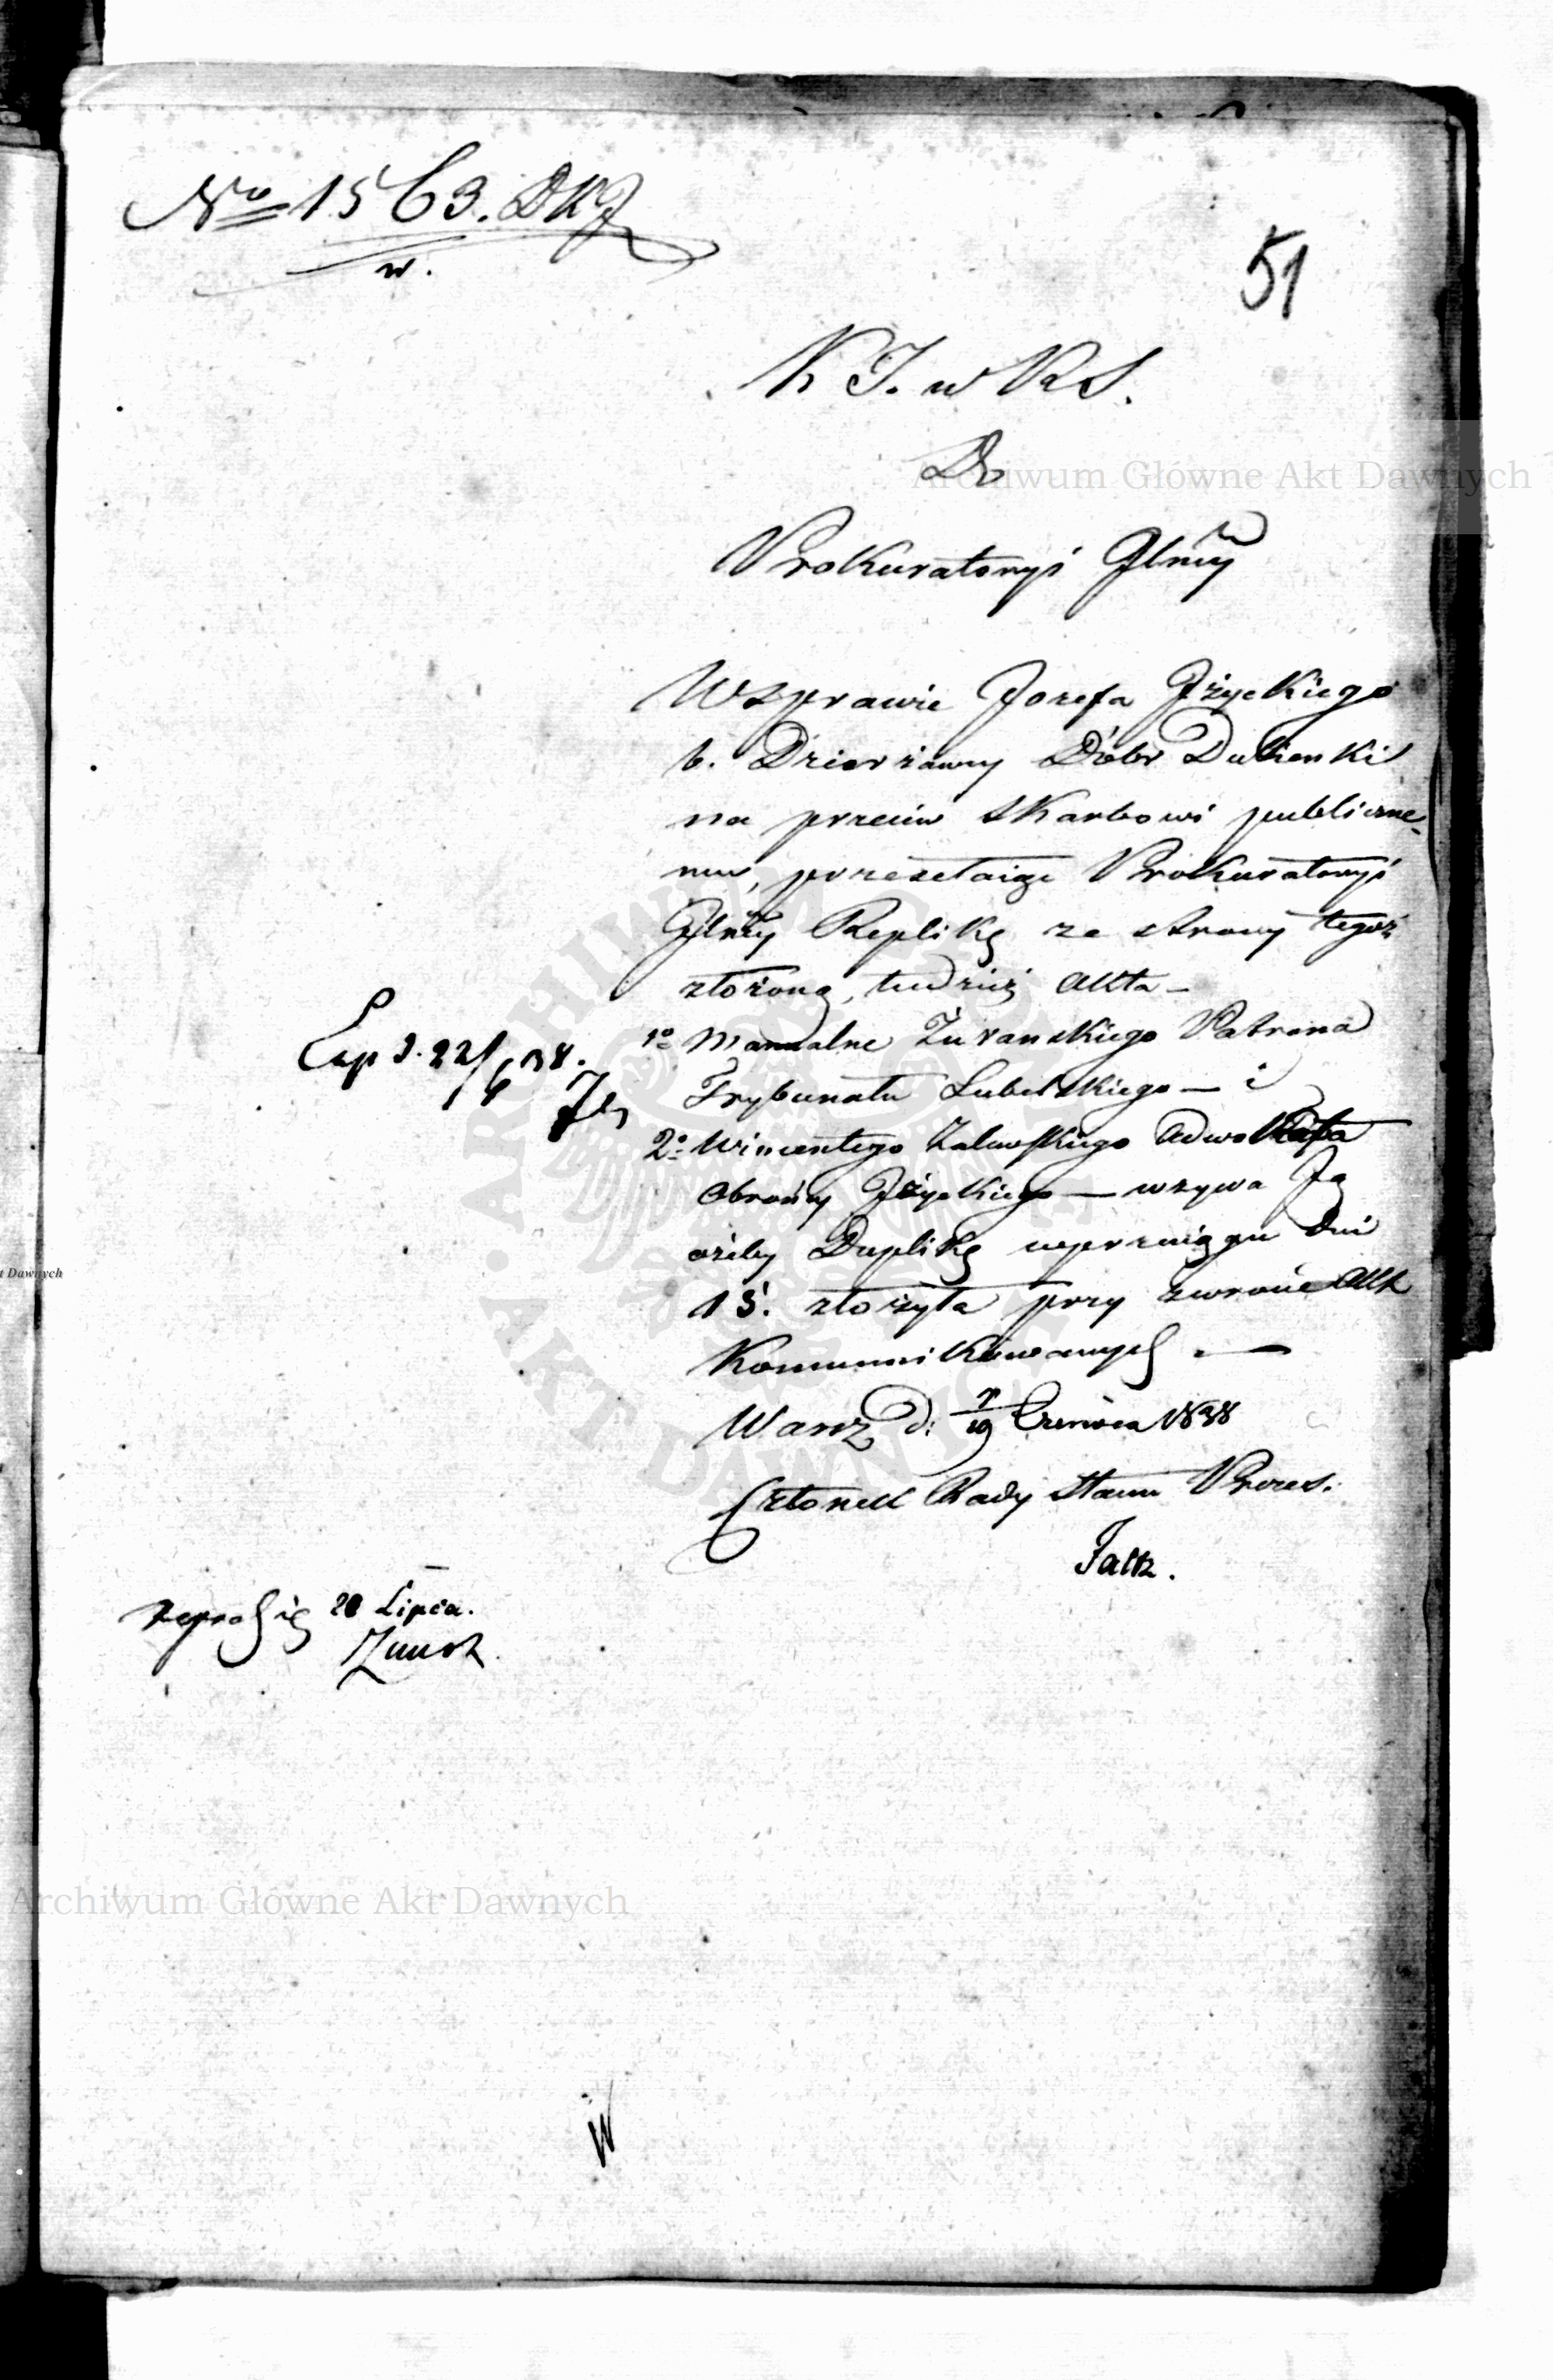 No 1563. DKJ
w.
51
K J. w RS.
Do
Prokuratoryi Glney
W sprawie Jozefa Jżyckiego
b. Dzierżawcy Dóbr Dubienki
na przeciw Skarbowi publiczne-
mu, przesełaiąc Prokuratoryi
Glney Replikę ze strony tegoż
złożoną, tudzież Akta —
1o Manualne Żurańskiego Patrona
Trybunału Lubelskiego — i
2o Wincentego Zalewskiego Adwokata
Obrońcy Jżyckiego — wzywa Ją
ażeby Duplikę w przeciągu Dni
15. złożyła przy zwrocie Akt
Kommunikowanych. —
Warsz d: 7/19 Czerwca 1838
Członek Rady Stanu Prezes.
Exp d. 22/6 838.
20 Lipca.
Archiwum Główne Akt Dawnych
Archiwum Główne Akt Dawnych
t Dawnych
ARCHIWUM GŁÓWNE
AKT DAWNYCH